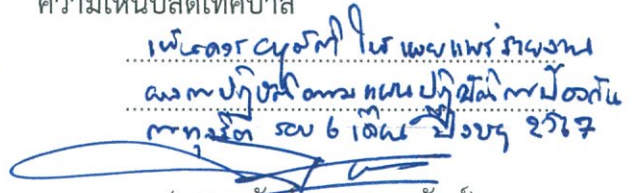 ความเห็นปลัดเทศบาล
เห็นควร อนุมัติ ให้ เผยแพร่ รายงาน
ผลการปฏิบัติตามแผนปฏิบัติการป้องกัน
การทุจริต รอบ 6 เดือน ปีงบฯ 2567